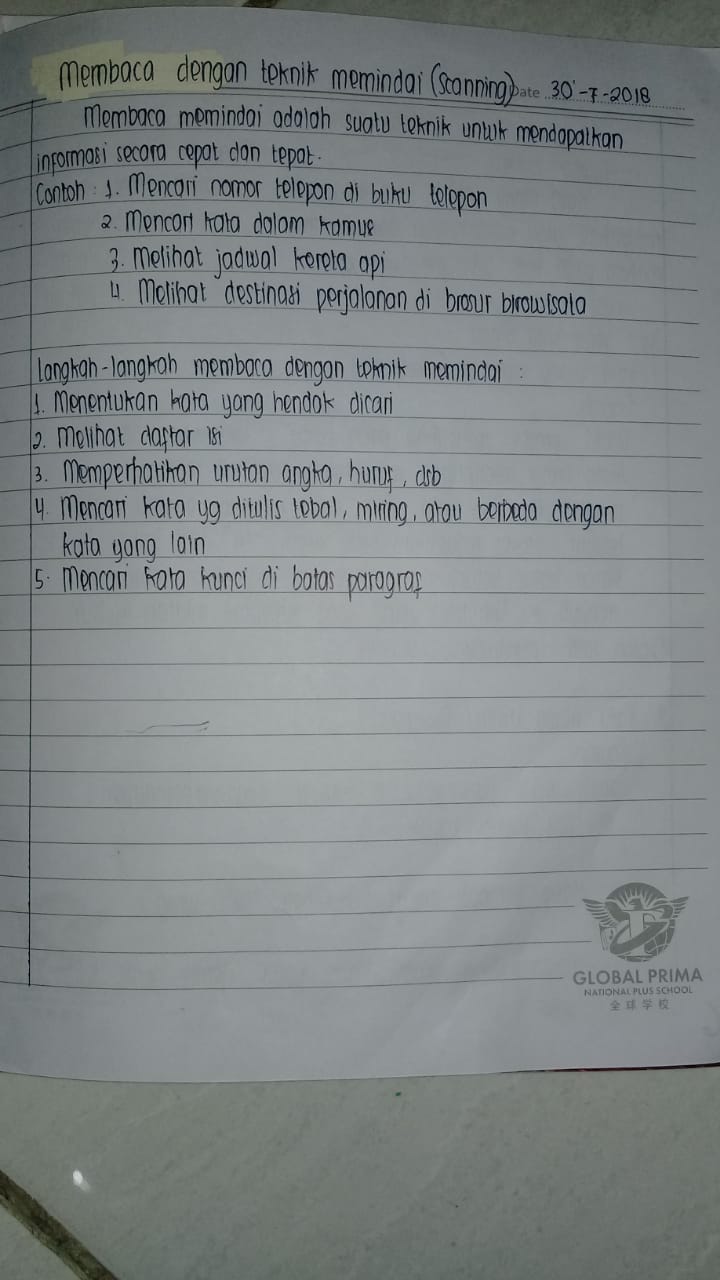 Membaca dengan teknik memindai (Scanning) Date 30-7-2018
Membaca memindai adalah suatu teknik untuk mendapatkan
informasi secara cepat dan tepat.
Contoh : 1. Mencari nomor telepon di buku telepon
2. Mencari kata dalam kamus
3. Melihat jadwal kereta api
4. Melihat destinasi perjalanan di brosur birowisata
Langkah-langkah membaca dengan teknik memindai :
1. Menentukan kata yang hendak dicari
2. Melihat daftar isi
3. Memperhatikan urutan angka, huruf, dsb
4. Mencari kata yg ditulis tebal, miring, atau berbeda dengan
kata yang lain
5. Mencari kata kunci di batas paragraf
GLOBAL PRIMA
NATIONAL PLUS SCHOOL
全球学校